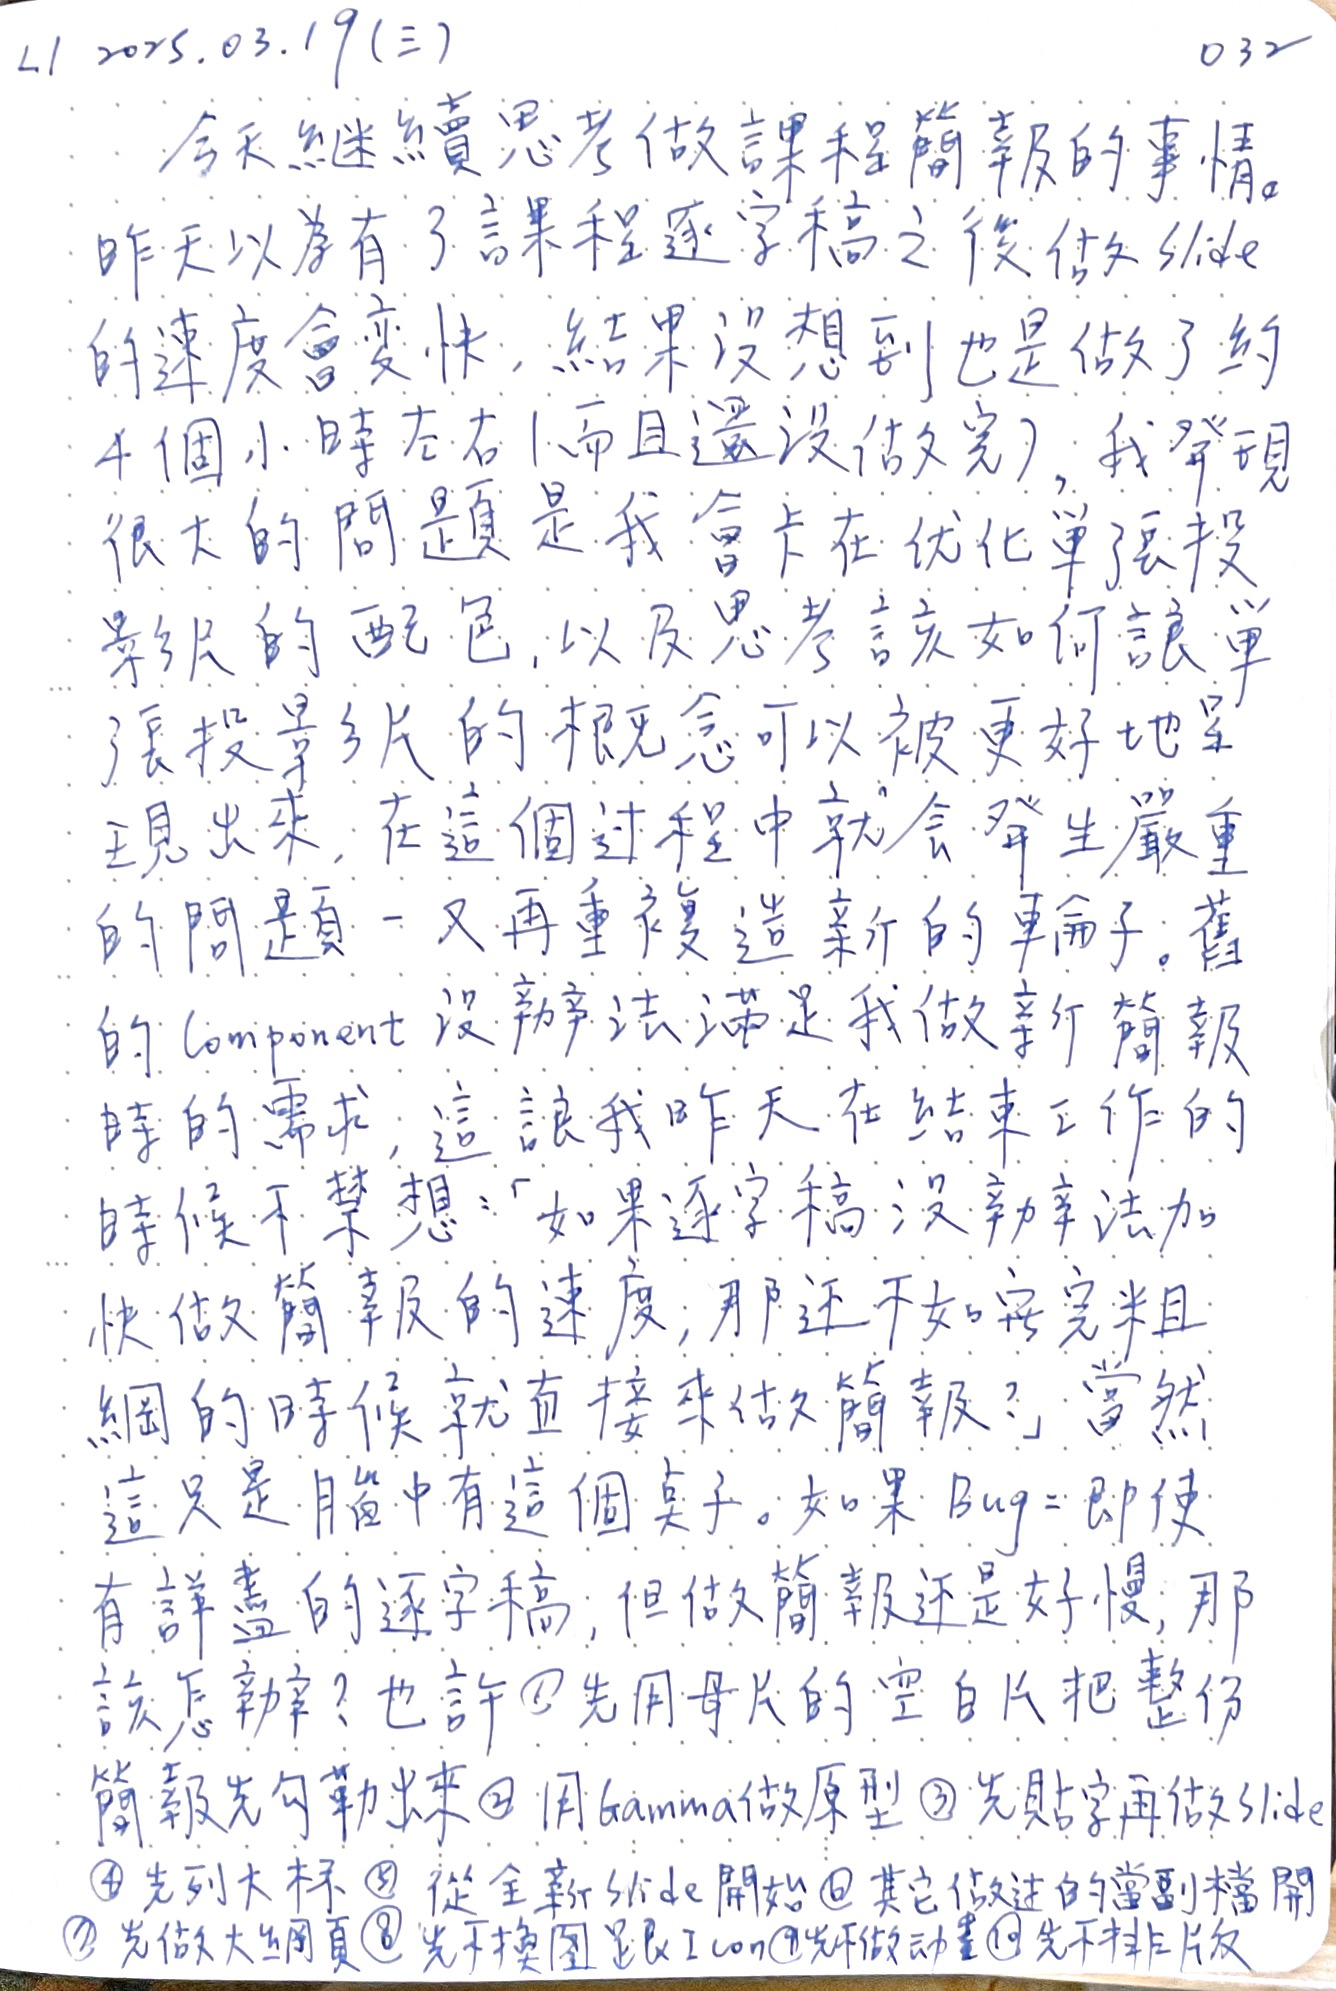 L1 2025.03.19(三) 032
今天繼續思考做課程簡報的事情。
昨天以為有了課程逐字稿之後做Slide
的速度會變快，結果沒想到也是做了約
4個小時左右(而且還沒做完)，我發現
很大的問題是我會卡在优化單張投
影片的配色，以及思考該如何讓單
張投影片的概念可以被更好地呈
現出來，在這個过程中就会發生嚴重
的問題－又再重複造新的車輪子。舊
的Component沒辦法滿足我做新簡報
時的需求，這讓我昨天在結束工作的
時候不禁想：「如果逐字稿沒辦法加
快做簡報的速度，那还不如寫完粗
綱的時候就直接來做簡報？」當然
這只是腦中有這個桌子。如果Bug=即使
有詳盡的逐字稿，但做簡報还是好慢，那
該怎辦？也許①先用母片的空白片把整份
簡報先勾勒出來②用Gamma做原型③先貼字再做Slide
④先列大标⑤從全新Slide開始⑥其它做过的當副檔開
⑦先做大綱頁⑧先不換圖跟Icon⑨先不做动畫⑩先不排版